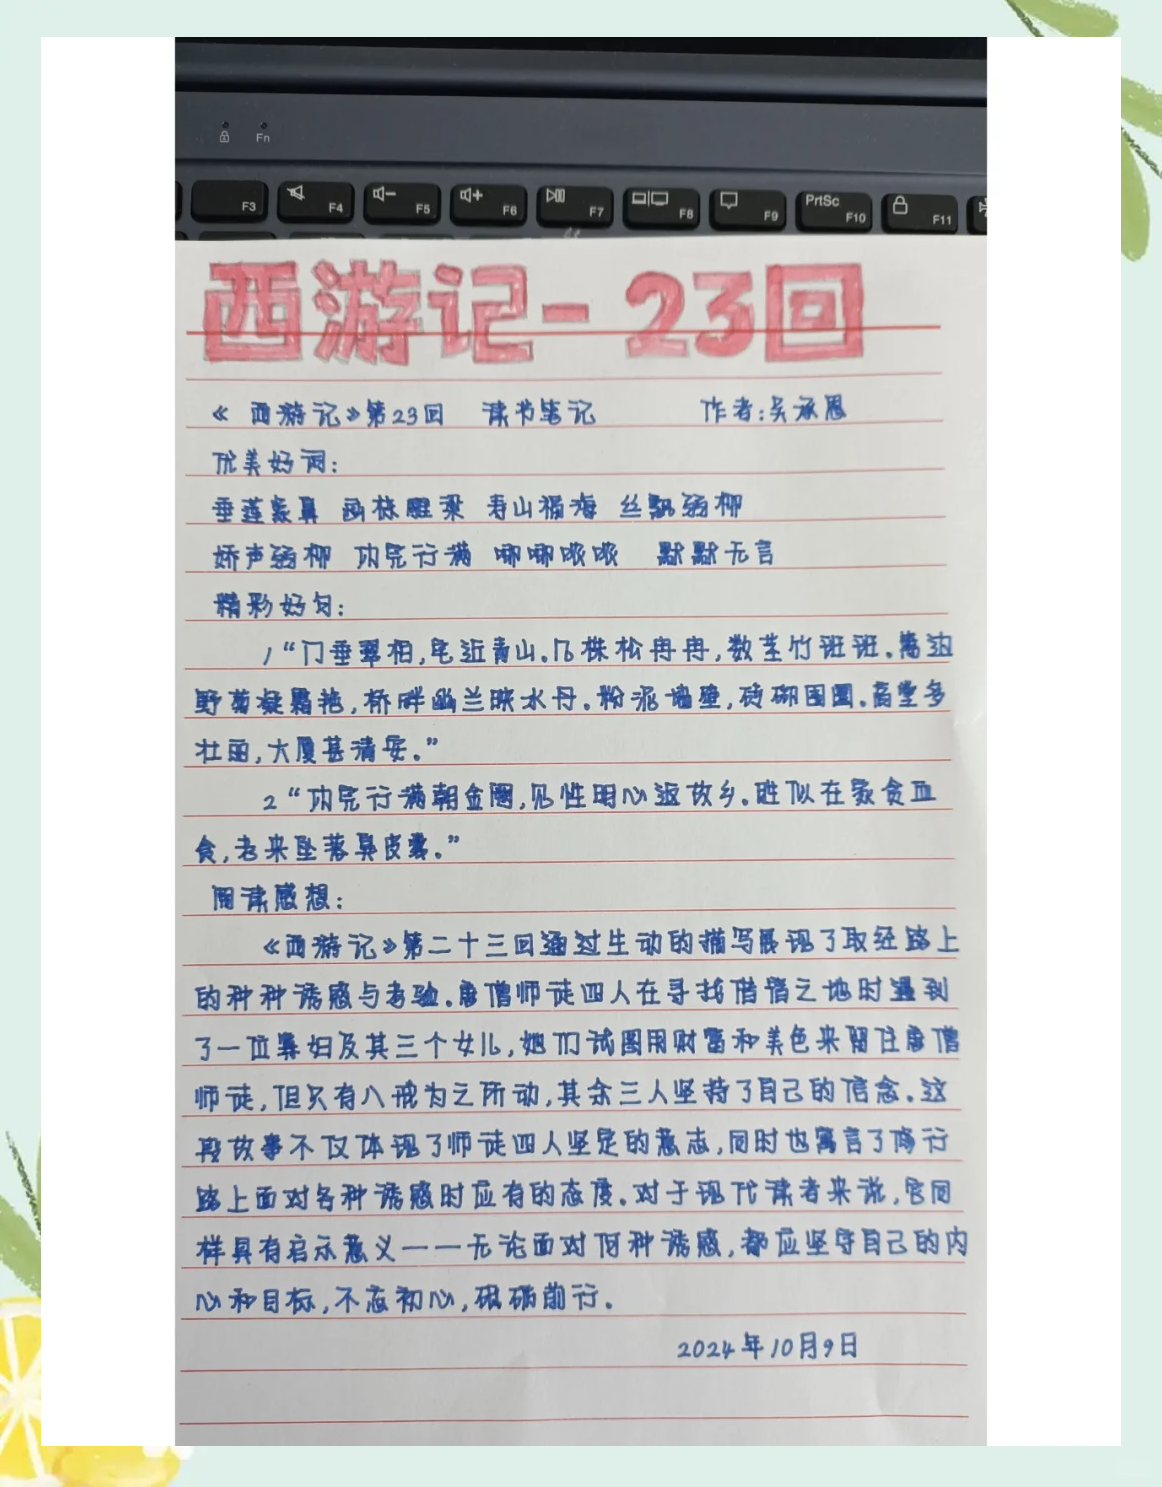 Fn
F3 F4 F5 F6 F7 F8 F9 PrtSc F10 F11
西游记-23回
《西游记》第23回 读书笔记 作者:吴承恩
优美好词:
垂莲象鼻 画栋雕梁 寿山福海 丝飘弱柳
娇声弱柳 功完行满 唧唧哝哝 默默无言
精彩好句:
1“门垂翠柏,宅近青山.几株松冉冉,数茎竹斑斑.篱边
野菊凝霜艳,桥畔幽兰映水丹.粉泥墙壁,砖砌围圜.高堂多
壮丽,大厦甚清安.”
2“功完行满朝金阙,见性明心返故乡.胜似在家贪血
食,老来坠落臭皮囊.”
阅读感想:
《西游记》第二十三回通过生动的描写展现了取经路上
的种种诱惑与考验.唐僧师徒四人在寻找借宿之地时遇到
了一位寡妇及其三个女儿,她们试图用财富和美色来留住唐僧
师徒,但只有八戒为之所动,其余三人坚持了自己的信念.这
段故事不仅体现了师徒四人坚定的意志,同时也寓言了修行
路上面对各种诱惑时应有的态度.对于现代读者来说,它同
样具有启示意义——无论面对何种诱惑,都应坚守自己的内
心和目标,不忘初心,砥砺前行.
2024年10月9日